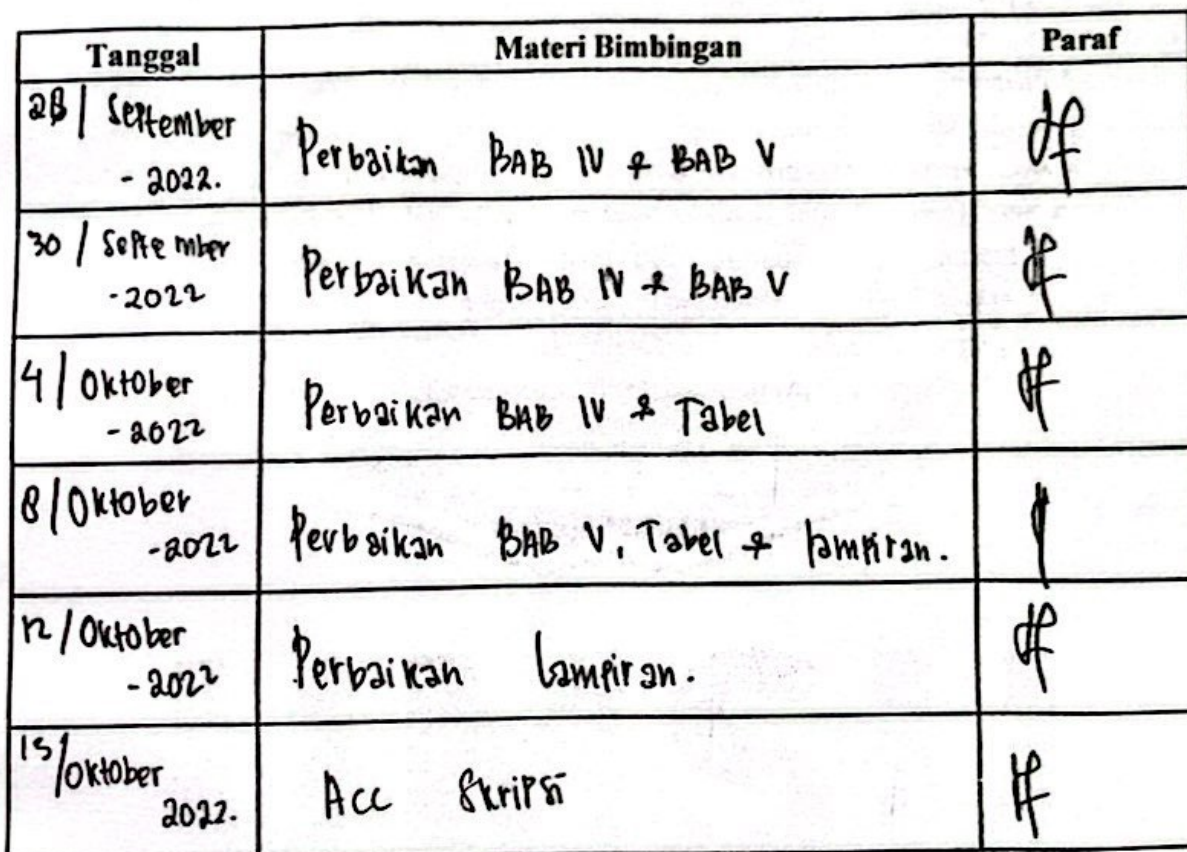 Tanggal Materi Bimbingan Paraf
28 / September
- 2022.
Perbaikan BAB IV & BAB V
30 / September
- 2022
Perbaikan BAB IV & BAB V
4 / Oktober
- 2022
Perbaikan BAB IV & Tabel
8 / Oktober
- 2022
Perbaikan BAB V, Tabel & lampiran.
12 / Oktober
- 2022
Perbaikan Lampiran.
15 / Oktober
2022.
Acc Skripsi